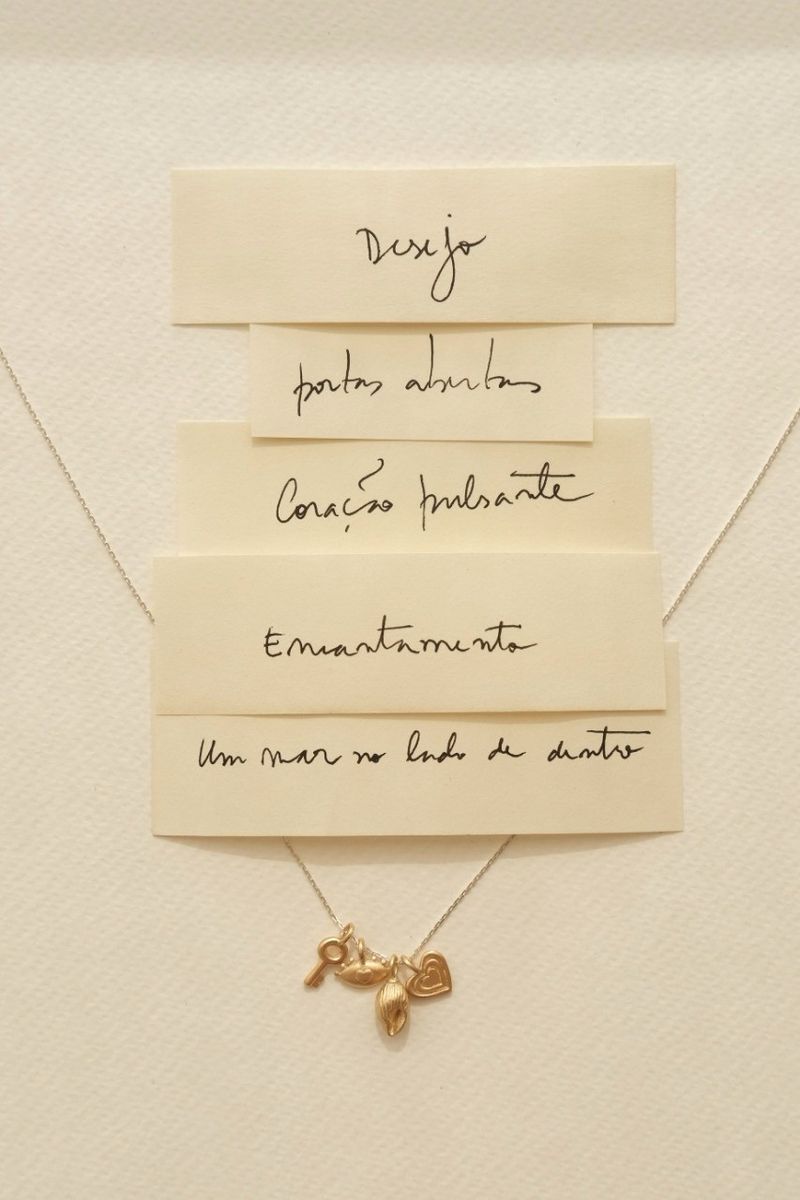 Desejo
portas abertas
Coração pulsante
Encantamento
Um mar no lado de dentro